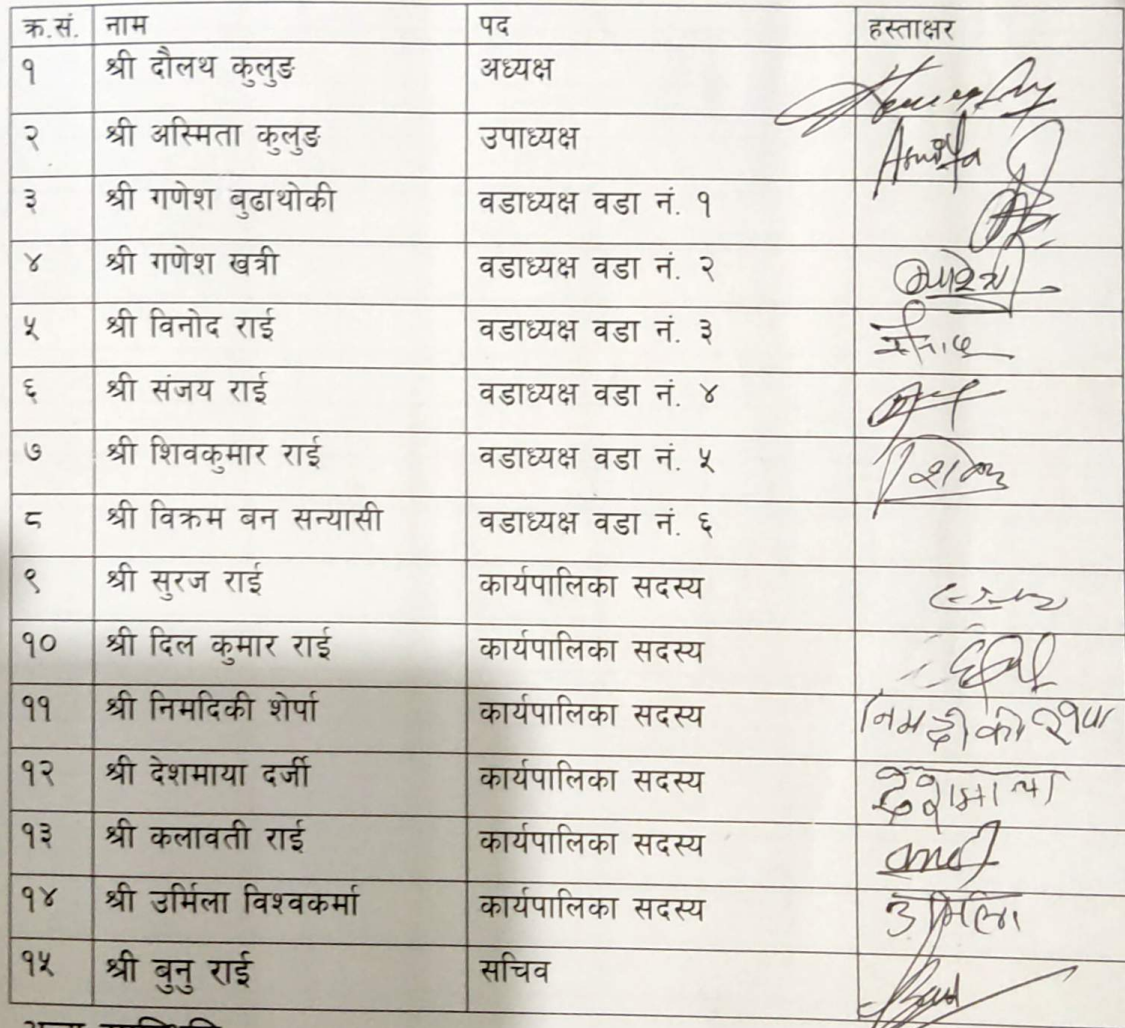 क्र.सं. नाम पद हस्ताक्षर
१ श्री दौलथ कुलुङ अध्यक्ष
२ श्री अस्मिता कुलुङ उपाध्यक्ष
३ श्री गणेश बुढाथोकी वडाध्यक्ष वडा नं. १
४ श्री गणेश खत्री वडाध्यक्ष वडा नं. २
५ श्री विनोद राई वडाध्यक्ष वडा नं. ३
६ श्री संजय राई वडाध्यक्ष वडा नं. ४
७ श्री शिवकुमार राई वडाध्यक्ष वडा नं. ५
८ श्री विक्रम बन सन्यासी वडाध्यक्ष वडा नं. ६
९ श्री सुरज राई कार्यपालिका सदस्य
१० श्री दिल कुमार राई कार्यपालिका सदस्य
११ श्री निमदिकी शेर्पा कार्यपालिका सदस्य
१२ श्री देशमाया दर्जी कार्यपालिका सदस्य देशमाया
१३ श्री कलावती राई कार्यपालिका सदस्य
१४ श्री उर्मिला विश्वकर्मा कार्यपालिका सदस्य
१५ श्री बुनु राई सचिव